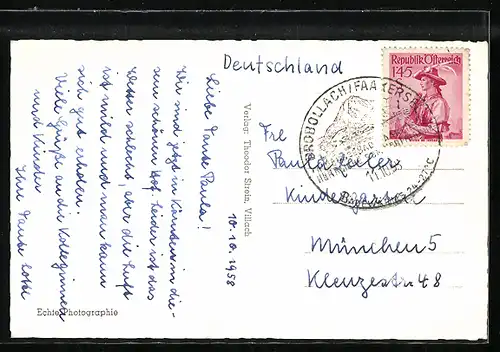 Deutschland
Republik Österreich
145
DROBOLLACH / FAAKERSEE
11.10.58
Bade
24-27° C
10.10.1958
Liebe Tante Paula!
Wir sind jetzt in Kärnten in die-
sem schönen Hof. Leider ist das
Wetter schlecht, aber die Luft
ist mild und man kann
sich gut erholen.
Viele Grüße an die Kolleginnen
und Kinder
Ihre Tante Lotte
Verlag: Theodor Strein, Villach
Echte Photographie
Frl
Paula
Kindergarten
München 5
Klenzestr. 48